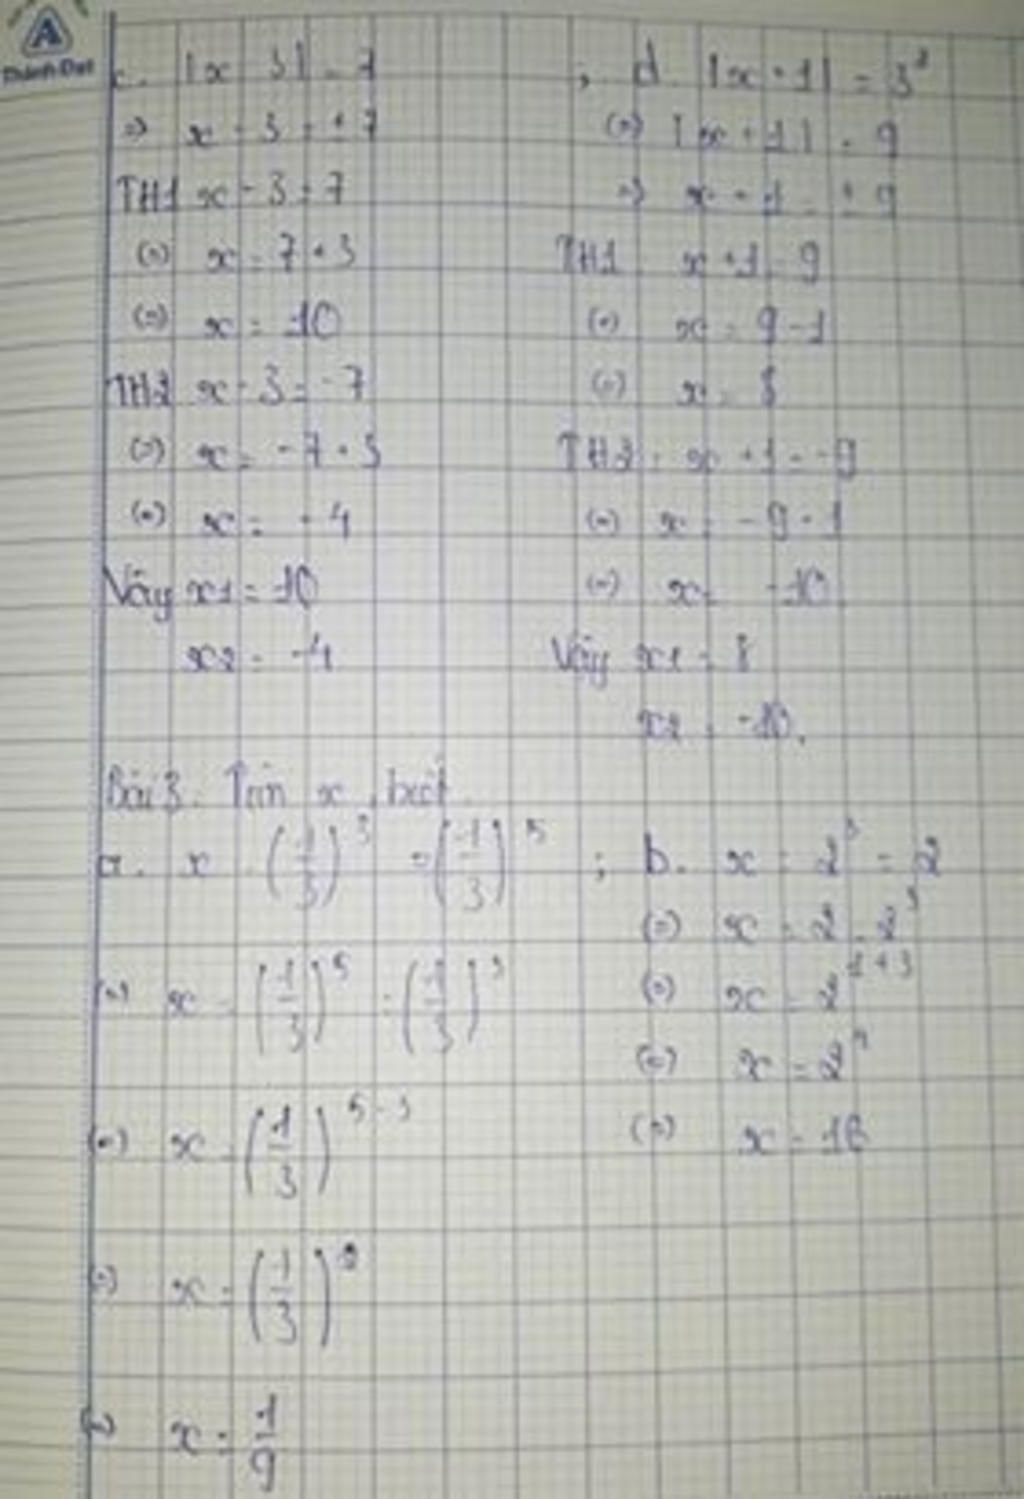 Thành Đạt
c. |x - 3| = 7
=> x - 3 = ±7
TH1 x - 3 = 7
(=) x = 7 + 3
(=) x = 10
TH2 x - 3 = -7
(=) x = -7 + 3
(=) x = -4
Vậy x1 = 10
x2 = -4
; d. |x + 1| = 3²
(=) |x + 1| = 9
=> x + 1 = ±9
TH1 x + 1 = 9
(=) x = 9 - 1
(=) x = 8
TH2: x + 1 = -9
(=) x = -9 - 1
(=) x = -10
Vậy x1 = 8
x2 = -10.
Bài 3. Tìm x, biết
a. x . (1/3)³ = (1/3)⁵
(=) x = (1/3)⁵ : (1/3)³
(=) x = (1/3)⁵⁻³
(=) x = (1/3)²
(=) x = 1/9
; b. x : 2³ = 2
(=) x = 2 . 2³
(=) x = 2¹⁺³
(=) x = 2⁴
(=) x = 16